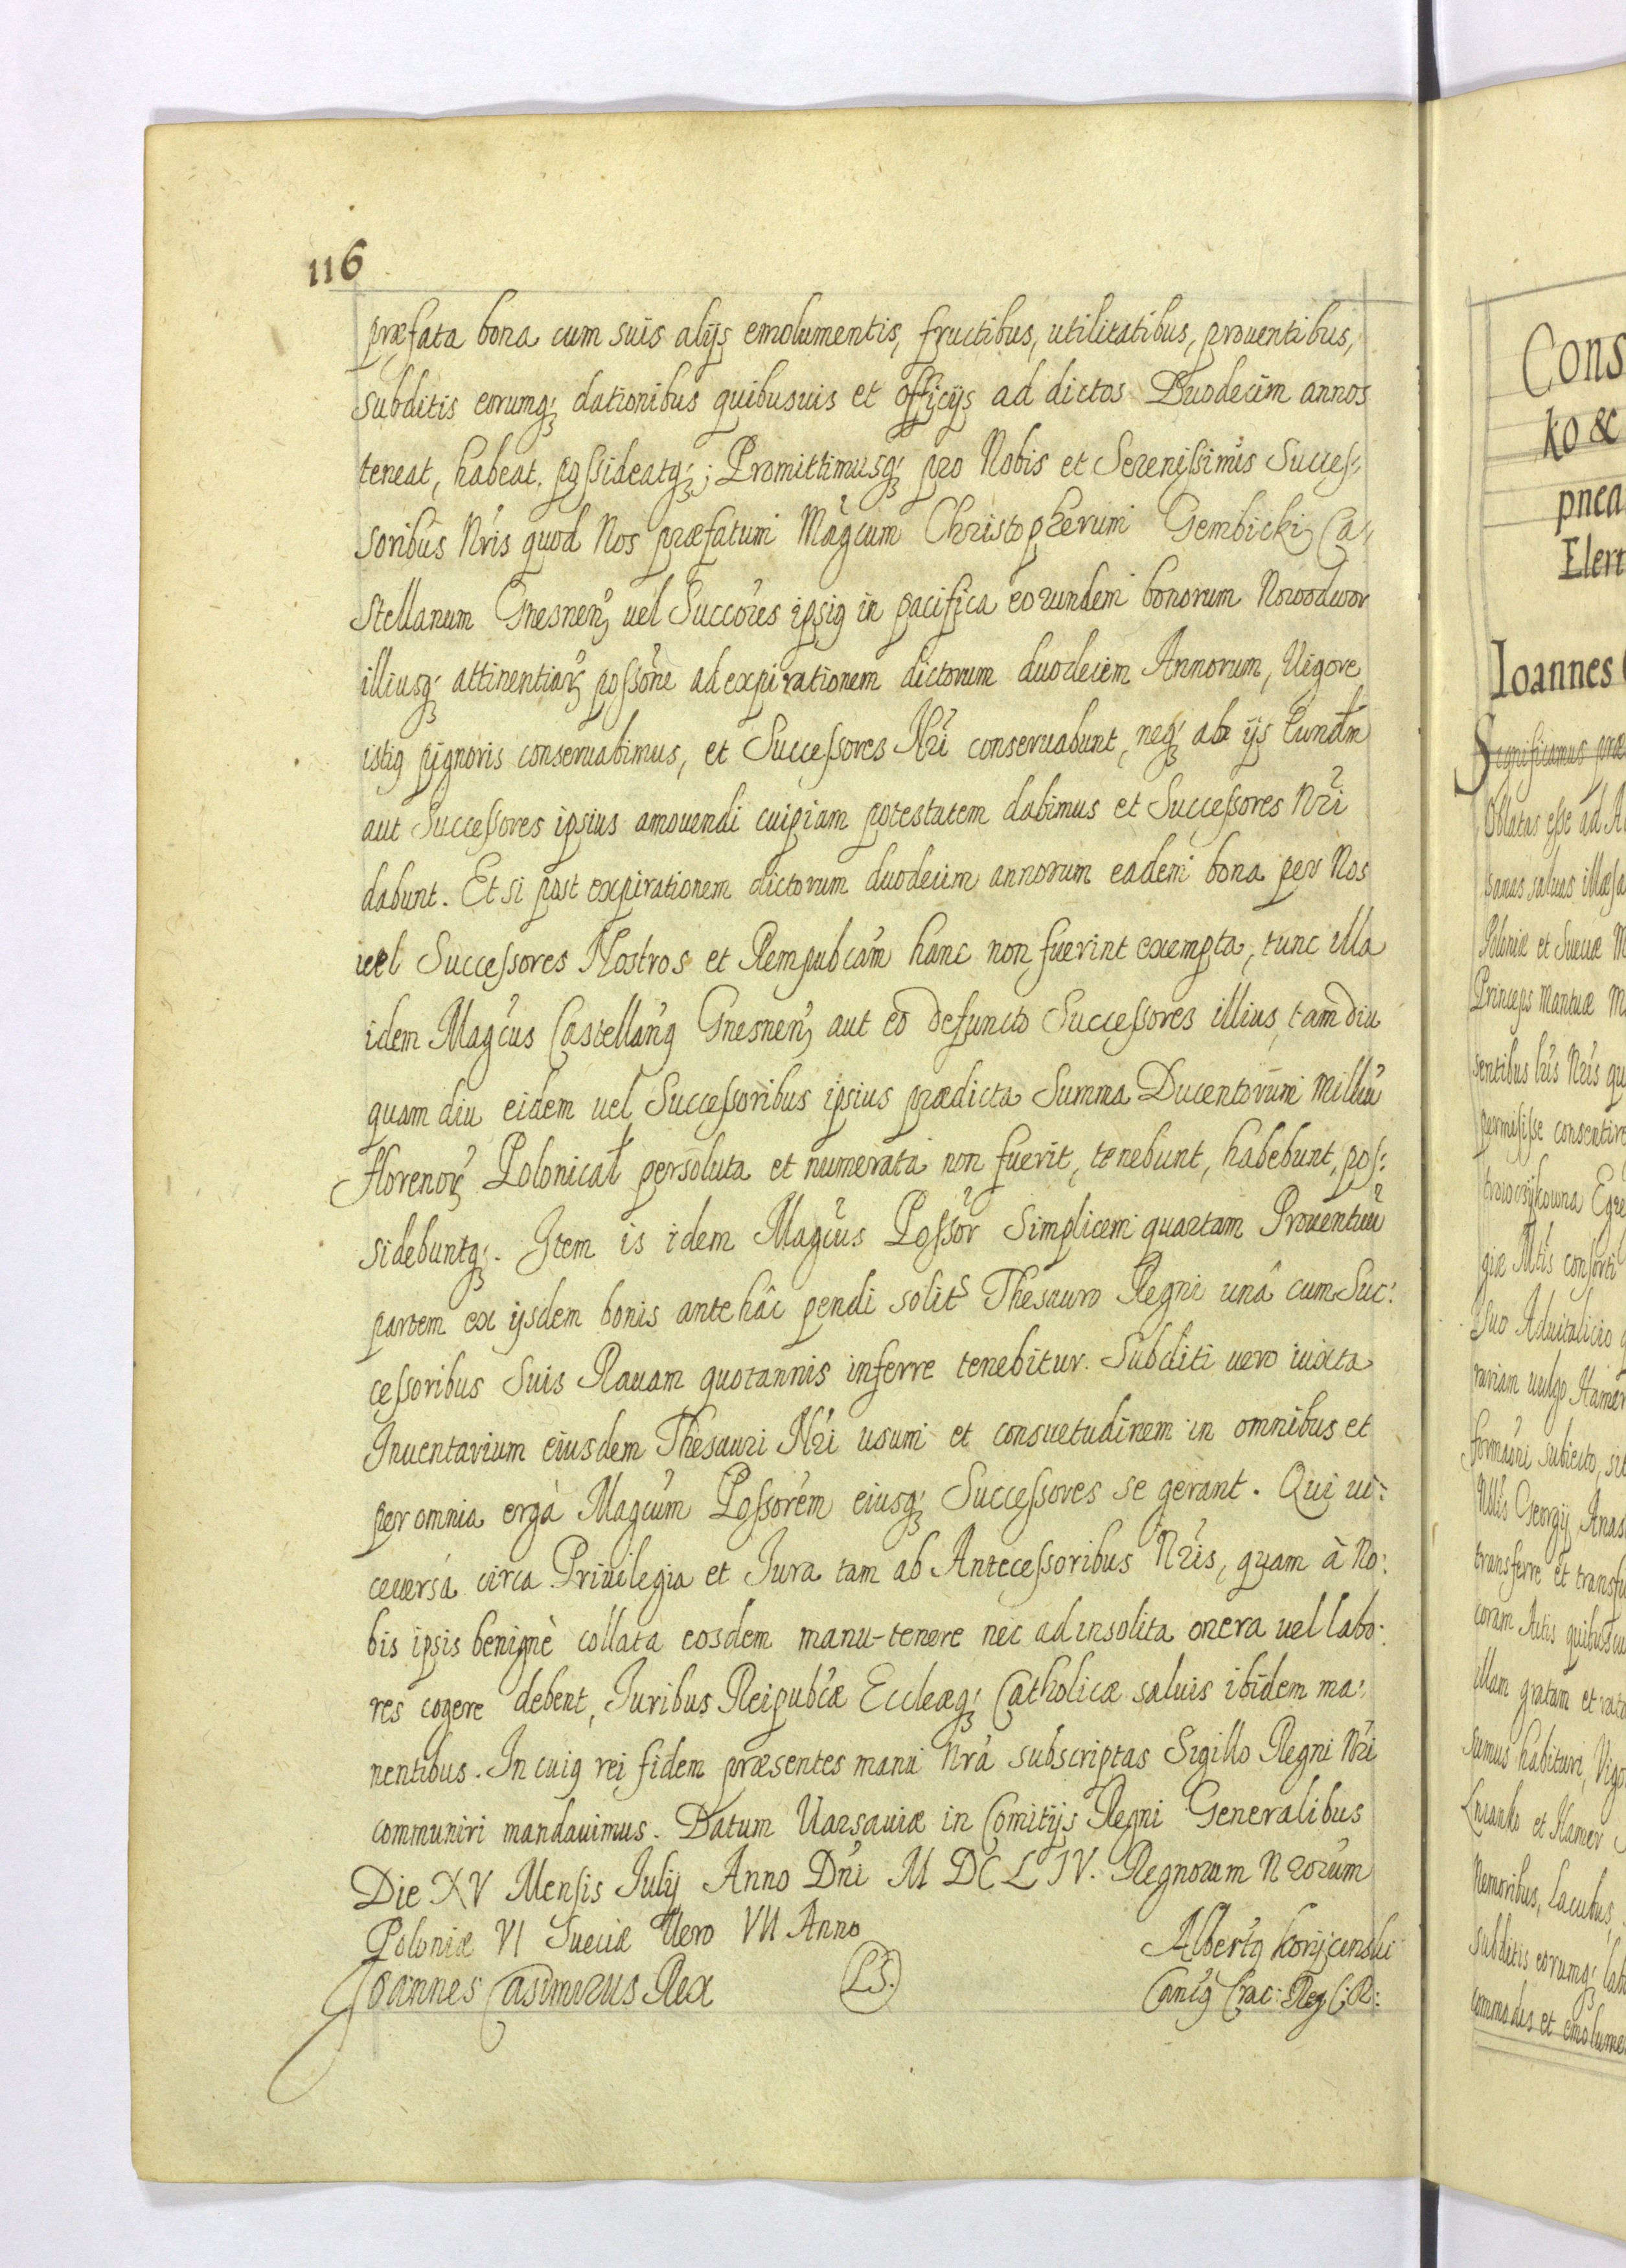 116
præfata bona cum suis alijs emolumentis, fructibus, utilitatibus, prouentibus,
subditis eorumq; dationibus quibusuis et officijs ad dictos Duodecim annos
teneat, habeat, possideatq;; Promittimusq; pro Nobis et Serenissimis Succes-
soribus Nris quod Nos præfatum Magcum Christopherum Gembicki Ca-
stellanum Gnesnen, uel Succores ipsig in pacifica eorundem bonorum Nowodwor
illiusq; attinentiar possone ad expirationem dictorum duodecim Annorum, Uigore
istig pignoris conseruabimus, et Successores Nri conseruabunt, neq; ab ijs Eundm
aut Successores ipsius amouendi cuipiam potestatem dabimus et Successores Nri
dabunt. Et si post expirationem dictorum duodecim annorum eadem bona per Nos
uel Successores Nostros et Rempubcam hanc non fuerint exempta, tunc illa
idem Magcus Castellang Gnesnen, aut eo defuncto Successores illius, tam diu
quam diu eidem uel Successoribus ipsius prædicta Summa Ducentorum Milliu
florenor Polonical persoluta et numerata non fuerit, tenebunt, habebunt, pos:
sidebuntq;. Item is idem Magcus Possor Simplicem quartam Prouentuu
partem ex ijsdem bonis ante hac pendi solit Thesauro Regni unâ cum Suc:
cessoribus Suis Rauam quotannis inferre tenebitur. Subditi uero iuxta
Inuentarium eiusdem Thesauri Nri usum et consuetudinem in omnibus et
per omnia erga Magcum Possorem eiusq; Successores se gerant. Qui ui:
ceuersa circa Priuilegia et Jura tam ab Antecessoribus Nris, quam à No:
bis ipsis benignè collata eosdem manu-tenere nec ad insolita onera uel labo:
res cogere debent, Juribus Reipubcæ Eccleæq; Catholicæ saluis ibidem ma:
nentibus. In cuig rei fidem præsentes manu Nra subscriptas Sigillo Regni Nri
communiri mandauimus. Datum Uarsauiæ in Comitijs Regni Generalibus
Die XV Mensis July Anno Dni M DC L IV. Regnorum Nrorum
Poloniæ VI Sueciæ Uero VII Anno
Joannes Casimirus Rex
LS.
Albertg Korycinski
Cancg Crac: Reg C: R:
Cons
ko &
pnea
Elert
Ioannes
Significamus præ
Oblatas esse ad A
sanas saluas illæsa
Poloniæ et Sueciæ M
Princeps Mantuæ M
sentibus lris Nris qu
permisisse consentire
giæ Mtis consorti
suo Aduitalicio
rariam uulgo Hamer
subiecto, sit
Georgij Anas
transferre et transfu
coram Actis quibuscu
illam gratam et rata
sumus habituri, Vigo
et Hamer
Nemoribus, Lacubus,
subditis eorumq; lab
commodis et emolume